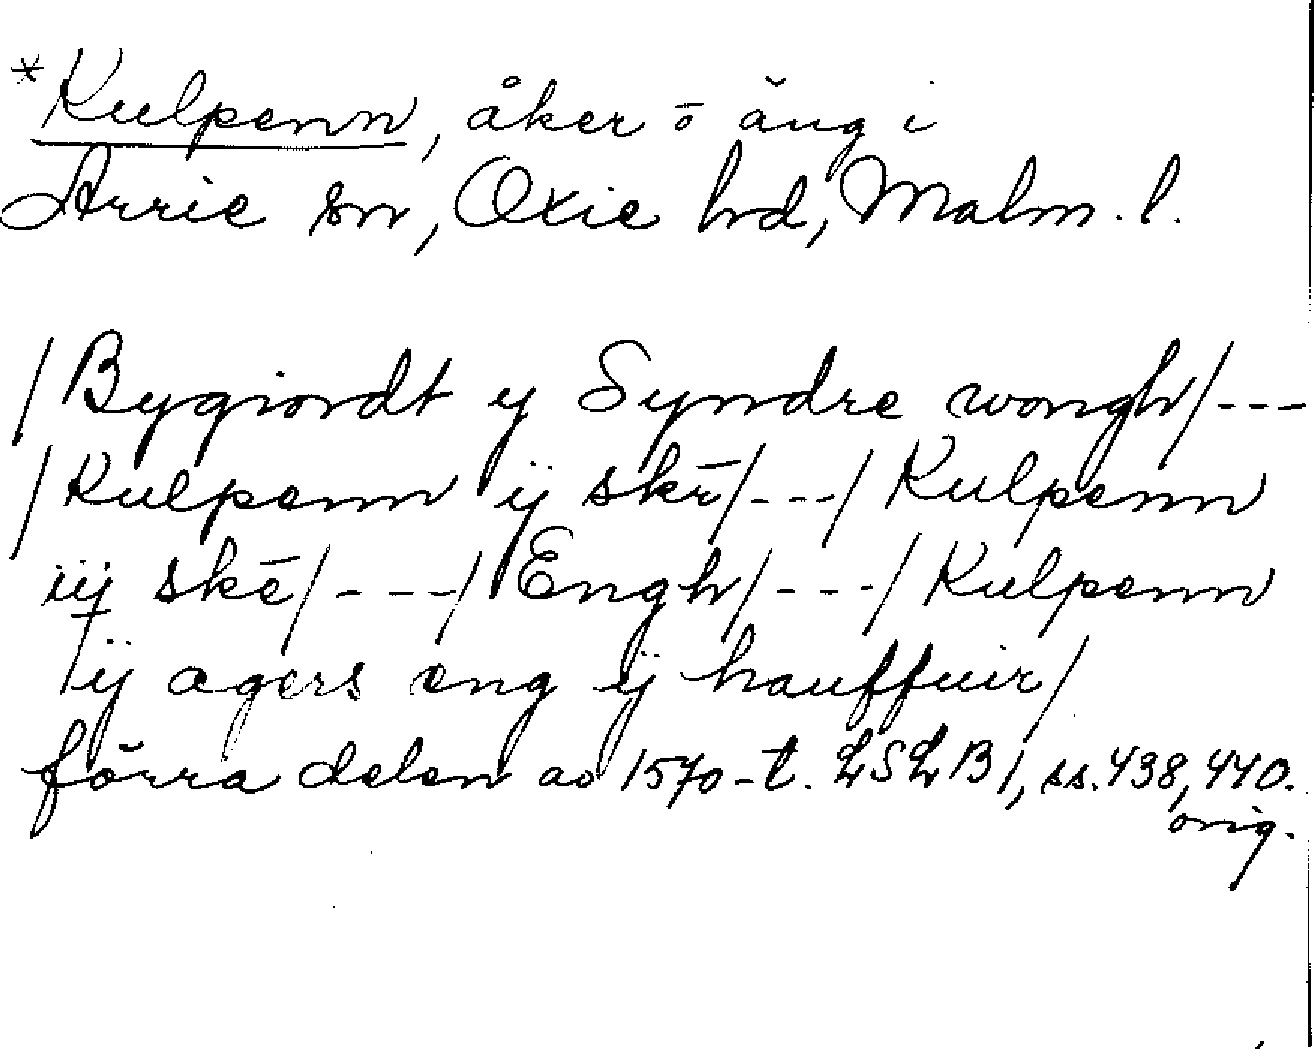 *Kulpenn, åker o äng i
Arrie sn, Oxie hd, Malm. l.
/Bygiordt y Syndre wongh/---
/Kulpenn ij skē/---/Kulpenn
iij skē/---/Engh/---/Kulpenn
ij agers eng ij hauffuir/
förra delen av 1570-t. LSLB 1, ss. 438, 440.
orig.